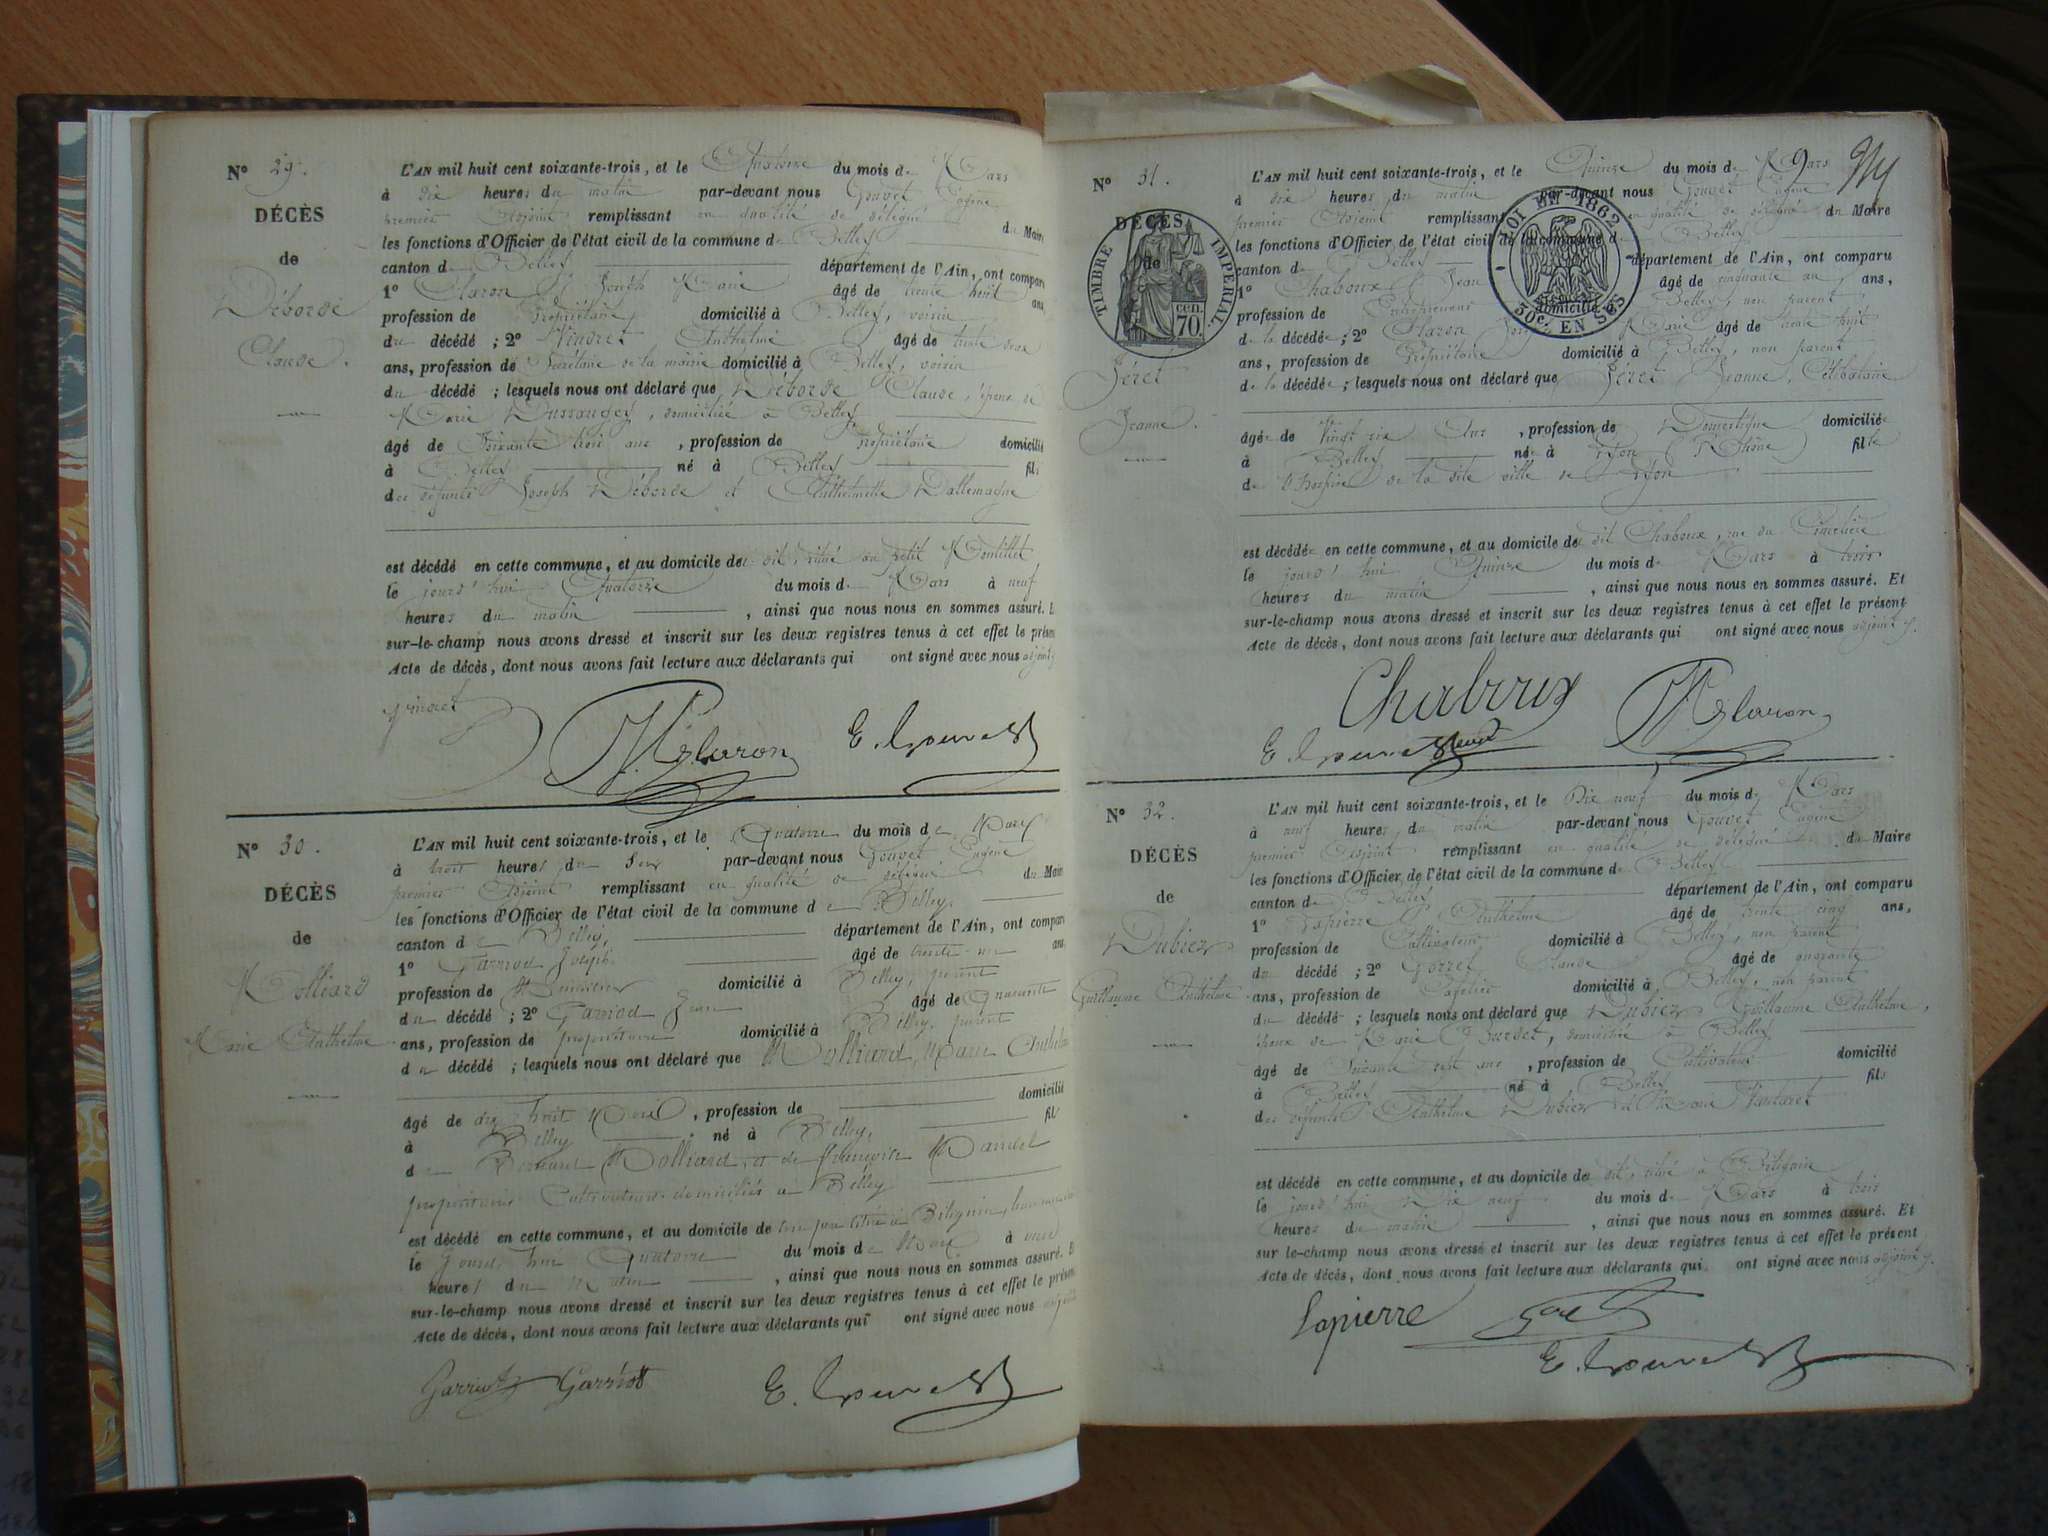 N° 29.
DÉCÈS
de
Déborde
Claude.
L'AN mil huit cent soixante-trois, et le Quatorze du mois de Mars
à dix heures du matin par-devant nous Gouvet Eugène
premier Adjoint remplissant en qualité de délégué du Maire
les fonctions d'Officier de l'état civil de la commune de Belley
canton de Belley département de l'Ain, ont comparu
1° Claron Joseph Marie âgé de trente huit ans
profession de Propriétaire domicilié à Belley, voisin
du décédé ; 2° Vindret Anthelme âgé de trente deux
ans, profession de Secrétaire de la mairie domicilié à Belley, voisin
du décédé ; lesquels nous ont déclaré que Déborde Claude, époux de
Marie Dussauges, domiciliée à Belley
âgé de Soixante trois ans, profession de propriétaire domicilié
à Belley né à Belley fils
des défunts Joseph Déborde et Anthelmette Dallemagne
est décédé en cette commune, et au domicile du dit, situé au petit Montillet
le jourd'hui Quatorze du mois de Mars à neuf
heures du matin, ainsi que nous nous en sommes assuré. E
sur-le-champ nous avons dressé et inscrit sur les deux registres tenus à cet effet le présen
Acte de décès, dont nous avons fait lecture aux déclarants qui ont signé avec nous adjoint
Claron E. Gouvet
N° 30.
DÉCÈS
de
Molliard
Marie Anthelme
L'AN mil huit cent soixante-trois, et le Quatorze du mois de Mars
à trois heures du Soir par-devant nous Gouvet Eugène
premier Adjoint remplissant en qualité de délégué du Maire
les fonctions d'Officier de l'état civil de la commune de Belley
canton de Belley, département de l'Ain, ont comparu
1° Garriod Joseph âgé de trente un ans
profession de Menuisier domicilié à Belley, parent
du décédé ; 2° Garriod Jean âgé de Quarante
ans, profession de propriétaire domicilié à Belley, parent
du décédé ; lesquels nous ont déclaré que Molliard, Marie Anthelme
âgé de dix huit Mois, profession de domicilié
à Belley né à Belley, fils
de Bernard Molliard, et de Françoise
propriétaires Cultivateurs domiciliés à Belley
est décédé en cette commune, et au domicile de son père situé à Bilignin,
le Jourd'hui Quatorze du mois de Mars à onze
heures du Matin, ainsi que nous nous en sommes assuré. E
sur-le-champ nous avons dressé et inscrit sur les deux registres tenus à cet effet le présen
Acte de décès, dont nous avons fait lecture aux déclarants qui ont signé avec nous
Garriod Garriod E. Gouvet
N° 31.
DÉCÈS
de
TIMBRE IMPÉRIAL
70 cen.
Féret
Jeanne.
9
LOI DE 1862
50c. EN SUS
L'AN mil huit cent soixante-trois, et le Quinze du mois de Mars
à dix heures du matin par-devant nous Gouvet Eugène
premier Adjoint remplissant en qualité de délégué du Maire
les fonctions d'Officier de l'état civil de la commune de Belley
canton de Belley département de l'Ain, ont comparu
1° Chaboux Jean âgé de cinquante un ans,
profession de Entrepreneur domicilié à Belley, non parent
de la décédée ; 2° Claron Joseph Marie âgé de trente huit
ans, profession de Propriétaire domicilié à Belley, non parent
de la décédée ; lesquels nous ont déclaré que Féret Jeanne, Célibataire
âgée de Vingt six Ans, profession de Domestique domiciliée
à Belley née à Lyon (Rhône) fille
de l'hospice de la dite ville de Lyon
est décédée en cette commune, et au domicile du dit Chaboux, rue du Cimetière
le jourd'hui Quinze du mois de Mars à trois
heures du matin, ainsi que nous nous en sommes assuré. Et
sur-le-champ nous avons dressé et inscrit sur les deux registres tenus à cet effet le présent
Acte de décès, dont nous avons fait lecture aux déclarants qui ont signé avec nous adjoint
Chaboux Claron
E. Gouvet
N° 32.
DÉCÈS
de
Dubiez
Guillaume Anthelme
L'AN mil huit cent soixante-trois, et le Dix neuf du mois de Mars
à neuf heures du matin par-devant nous Gouvet Eugène
premier Adjoint remplissant en qualité de délégué du Maire
les fonctions d'Officier de l'état civil de la commune de Belley
canton de Belley département de l'Ain, ont comparu
1° Lapierre Anthelme âgé de trente cinq ans,
profession de Cultivateur domicilié à Belley, non parent
du décédé ; 2° Gorret Claude âgé de quarante
ans, profession de Cafetier domicilié à Belley, non parent
du décédé ; lesquels nous ont déclaré que Dubiez Guillaume Anthelme,
époux de Marie Burdet, domiciliée à Belley
âgé de Soixante sept ans, profession de Cultivateur domicilié
à Belley né à Belley fils
des défunts Anthelme Dubiez et Marie
est décédé en cette commune, et au domicile du dit, situé à Bilignin
le jourd'hui Dix neuf du mois de Mars à trois
heures du matin, ainsi que nous nous en sommes assuré. Et
sur le-champ nous avons dressé et inscrit sur les deux registres tenus à cet effet le présent
Acte de décès, dont nous avons fait lecture aux déclarants qui ont signé avec nous adjoint
Lapierre
E. Gouvet